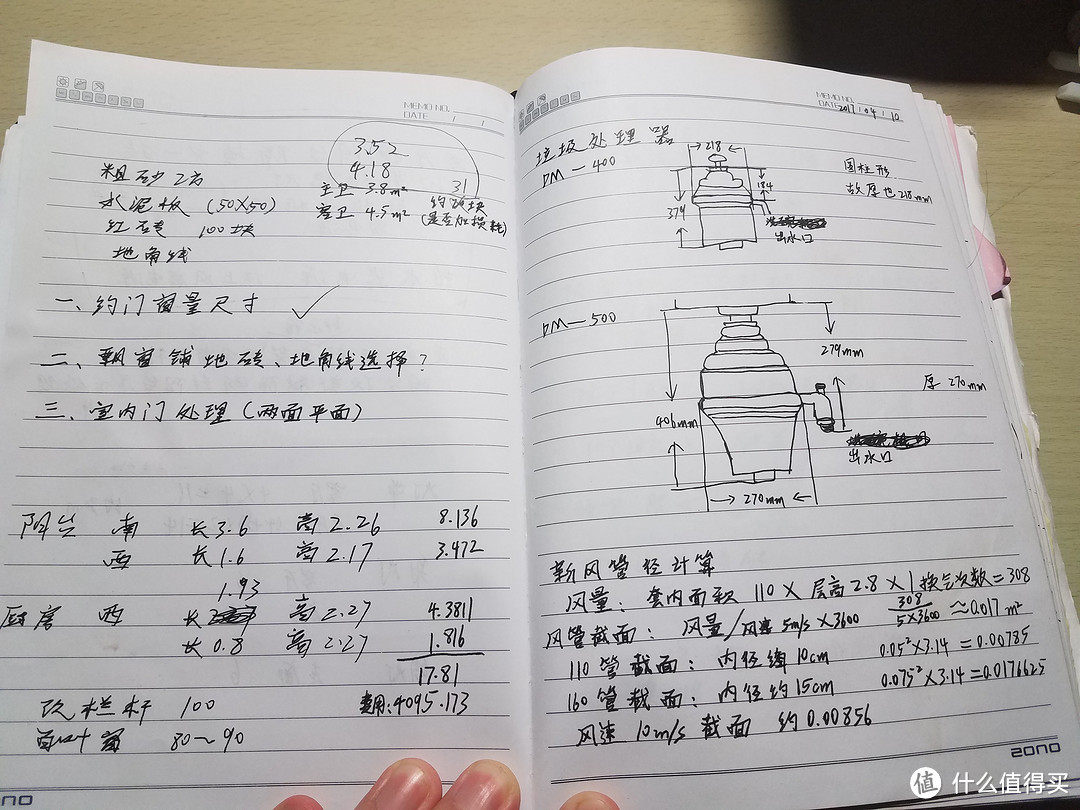 MEMO NO.
DATE / /
3.52
4.18
粗砂 2方
主卫 3.8m²
31
水泥板 (50×50)
客卫 4.5m²
块
(是否加损耗)
红砖 100块
地角线
一、约门窗量尺寸 ✓
二、飘窗铺地砖、地角线选择?
三、室内门处理(两面平面)
阳台 南 长3.6 高2.26 8.136
西 长1.6 高2.17 3.472
1.93
厨房 西 长 高2.27 4.3811
长0.8 高2.27 1.816
17.81
改栏杆 100 费用:4095.173
百叶窗 80~90
MEMO NO.
DATE 2017 / 04 / 10
垃圾处理器
DM—400
218
374
184
出水口
圆柱形
故厚也218mm
DM—500
279mm
406mm
厚 270mm
出水口
270mm
新风管径计算
风量: 套内面积 110 × 层高2.8 × 1换气次数=308
风管截面: 风量/风速 5m/s ×3600 308/5×3600 ≈0.017m²
110管截面: 内径约10cm 0.05²×3.14=0.00785
160管截面: 内径约15cm 0.075²×3.14=0.0176625
风速 10m/s 截面 约0.00856
ZONO
值 什么值得买